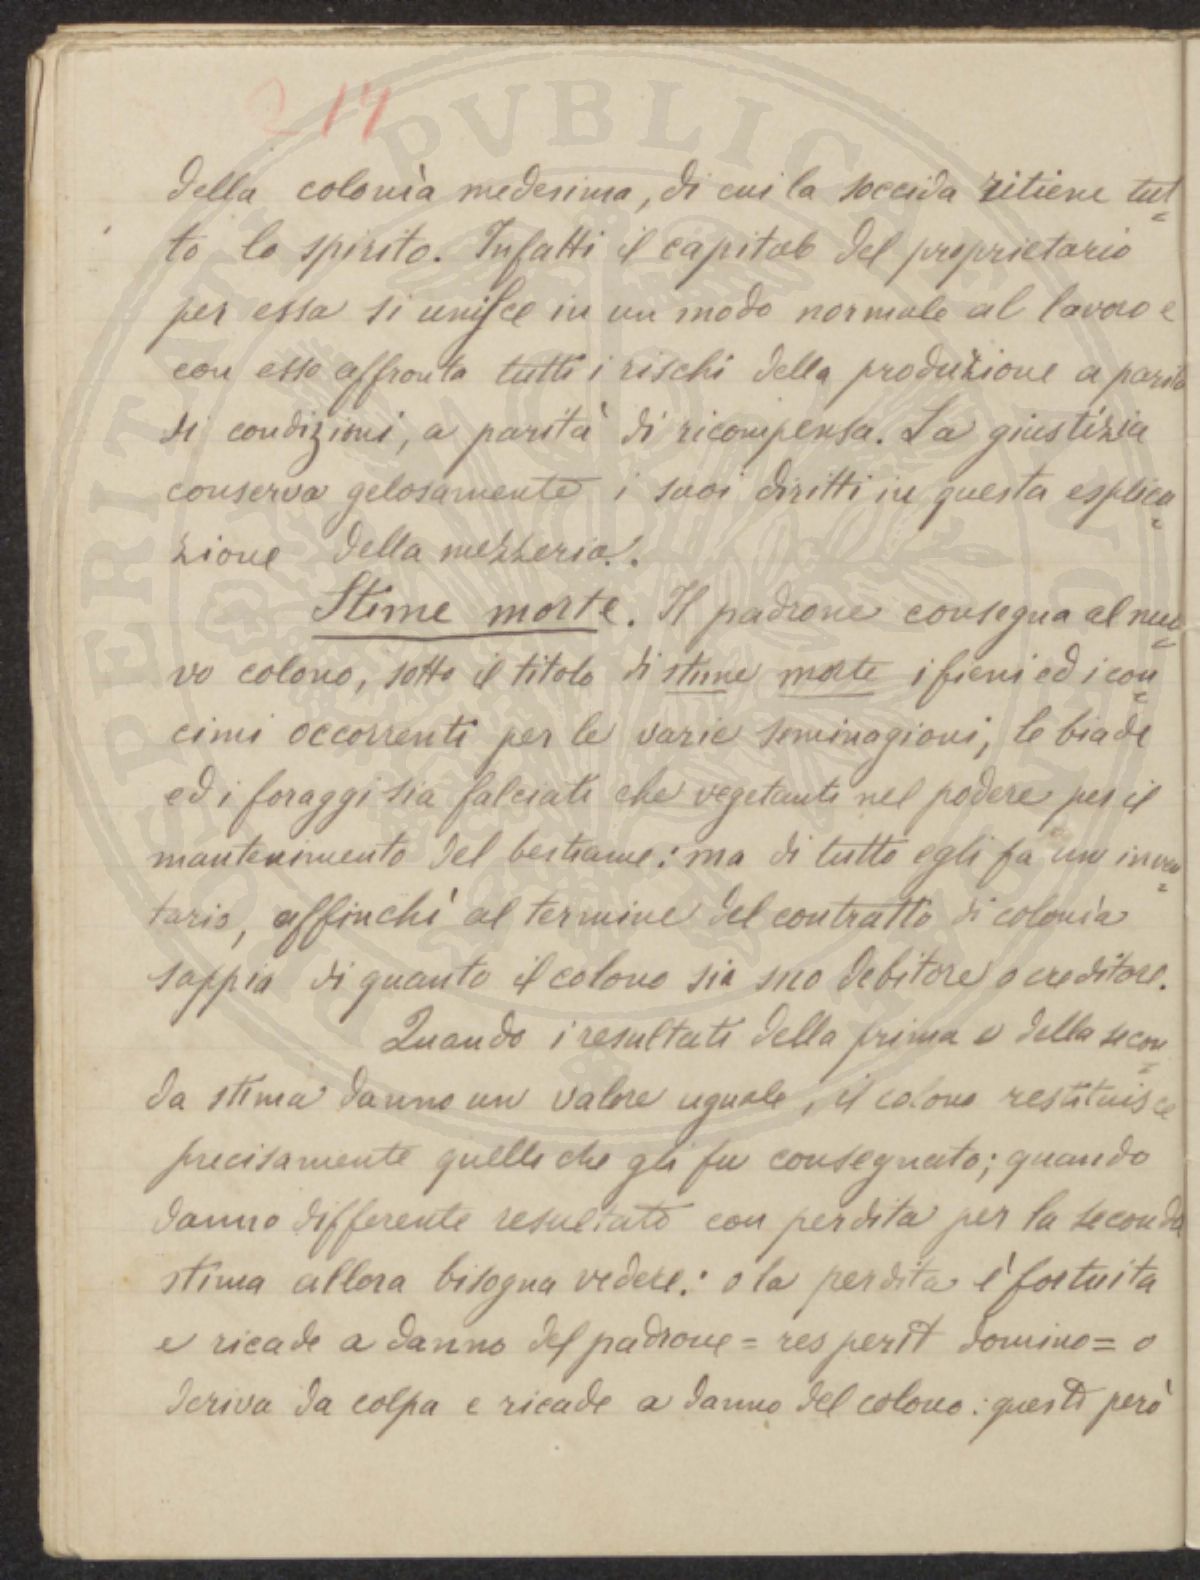 217
della colonìa medesima, di cui la soccida ritiene tut=
to lo spirito. Infatti il capitale del proprietario
per essa si unisce in un modo normale al lavoro e
con esso affronta tutti i rischi della produzione a parità
di condizioni, a parità di ricompensa. La giustizia
conserva gelosamente i suoi diritti in questa esplica=
zione della mezzeria.
Stime morte. Il padrone consegna al nuo=
vo colono, sotto il titolo di stime morte i fieni ed i con=
cimi occorrenti per le varie seminagioni, le biade
ed i foraggi sia falciati che vegetanti nel podere per il
mantenimento del bestiame: ma di tutto egli fa un inven=
tario, affinchè al termine del contratto di colonìa
sappia di quanto il colono sia suo debitore o creditore.
Quando i resultati della prima e della secon=
da stima danno un valore uguale, il colono restituisce
precisamente quello che gli fu consegnato; quando
danno differente resultato con perdita per la seconda
stima allora bisogna vedere: o la perdita è fortuita
e ricade a danno del padrone = res perit domino = o
deriva da colpa e ricade a danno del colono: questi però
PVBLICAE
PROSPERITATIS